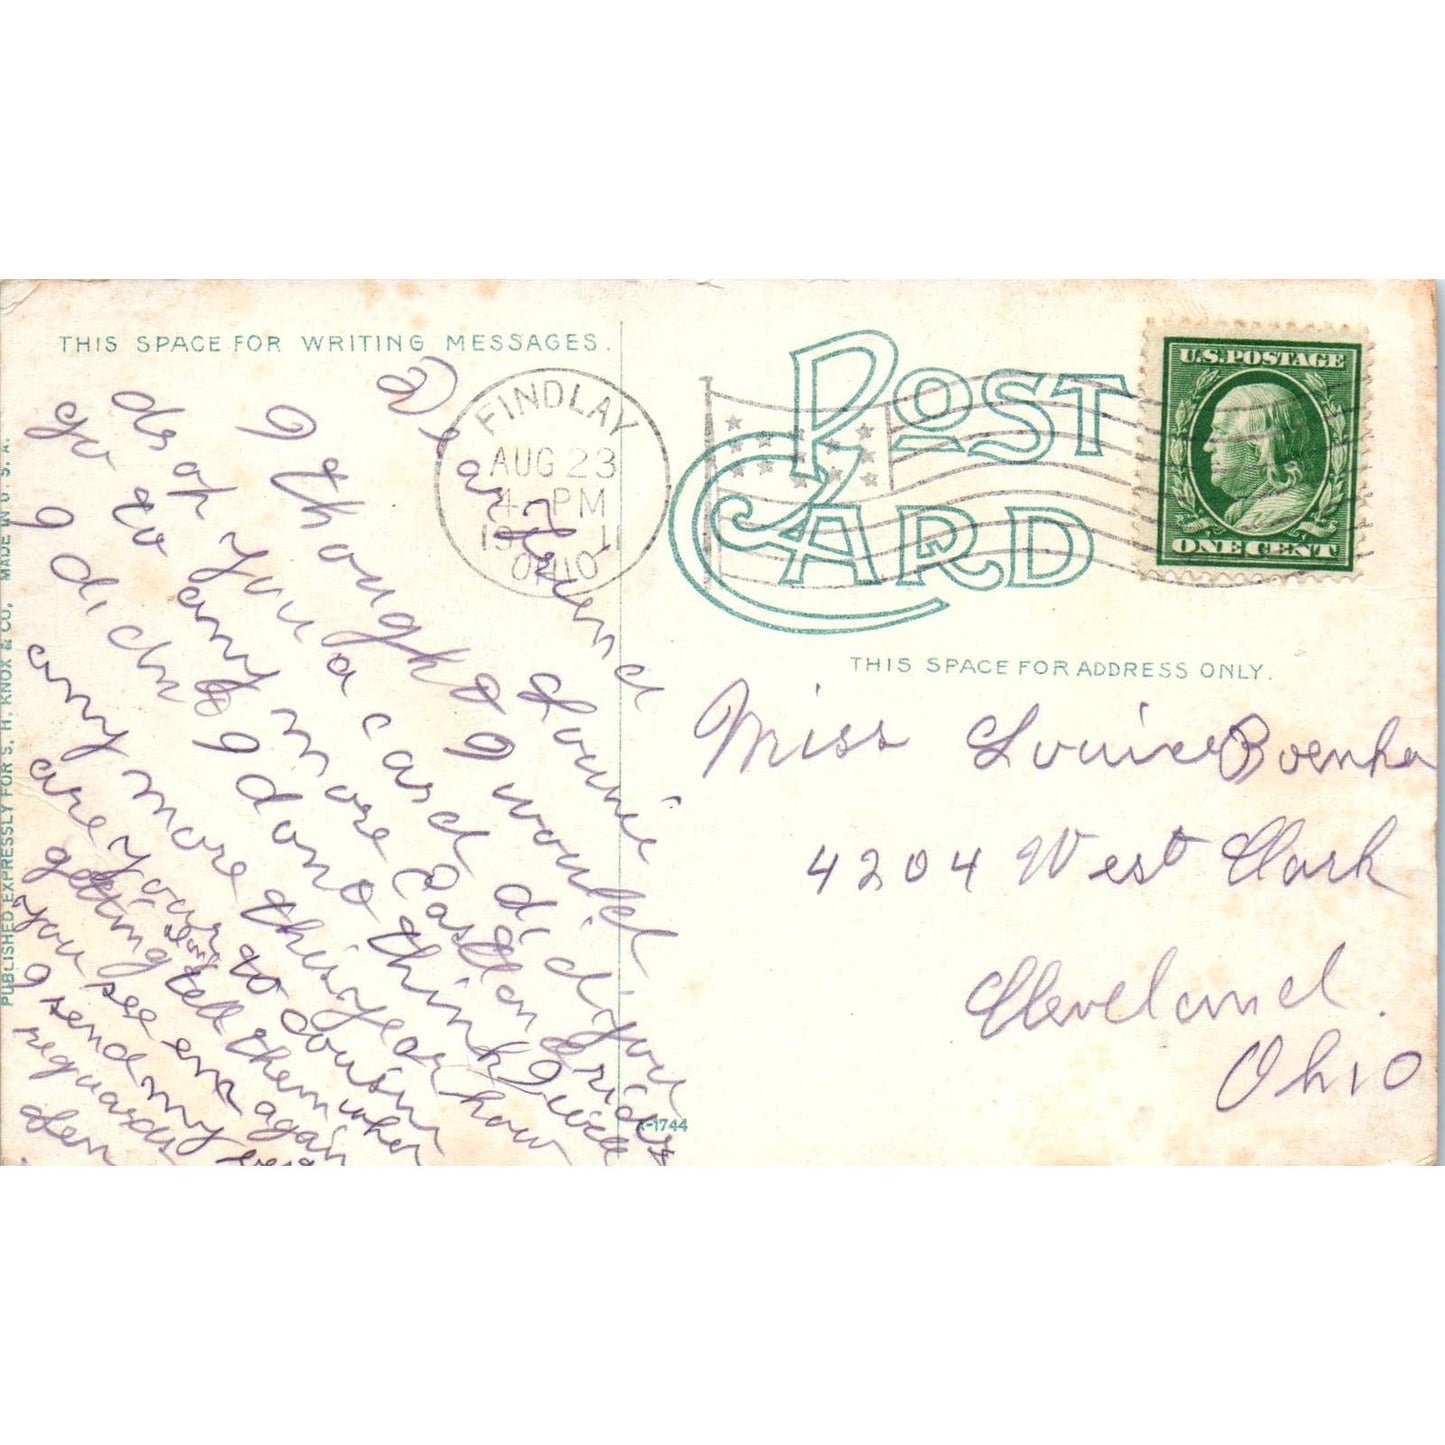 THIS SPACE FOR WRITING MESSAGES.
Dear Friend
Louie
I thought I would
drop you a card did you
go to any more Castlon Brides
I dich & I dono think I will
any more this year how
are your to cousin
getting tell them when
you see em again
I send my best
reguards
Len
FINDLAY
AUG 23
4 PM
19 11
OHIO
POST CARD
U.S. POSTAGE
ONE CENT
THIS SPACE FOR ADDRESS ONLY.
Miss Louise Boenke
4204 West Clark
Cleveland.
Ohio
PUBLISHED EXPRESSLY FOR S. H. KNOX & CO. MADE IN U. S. A.
A-1744